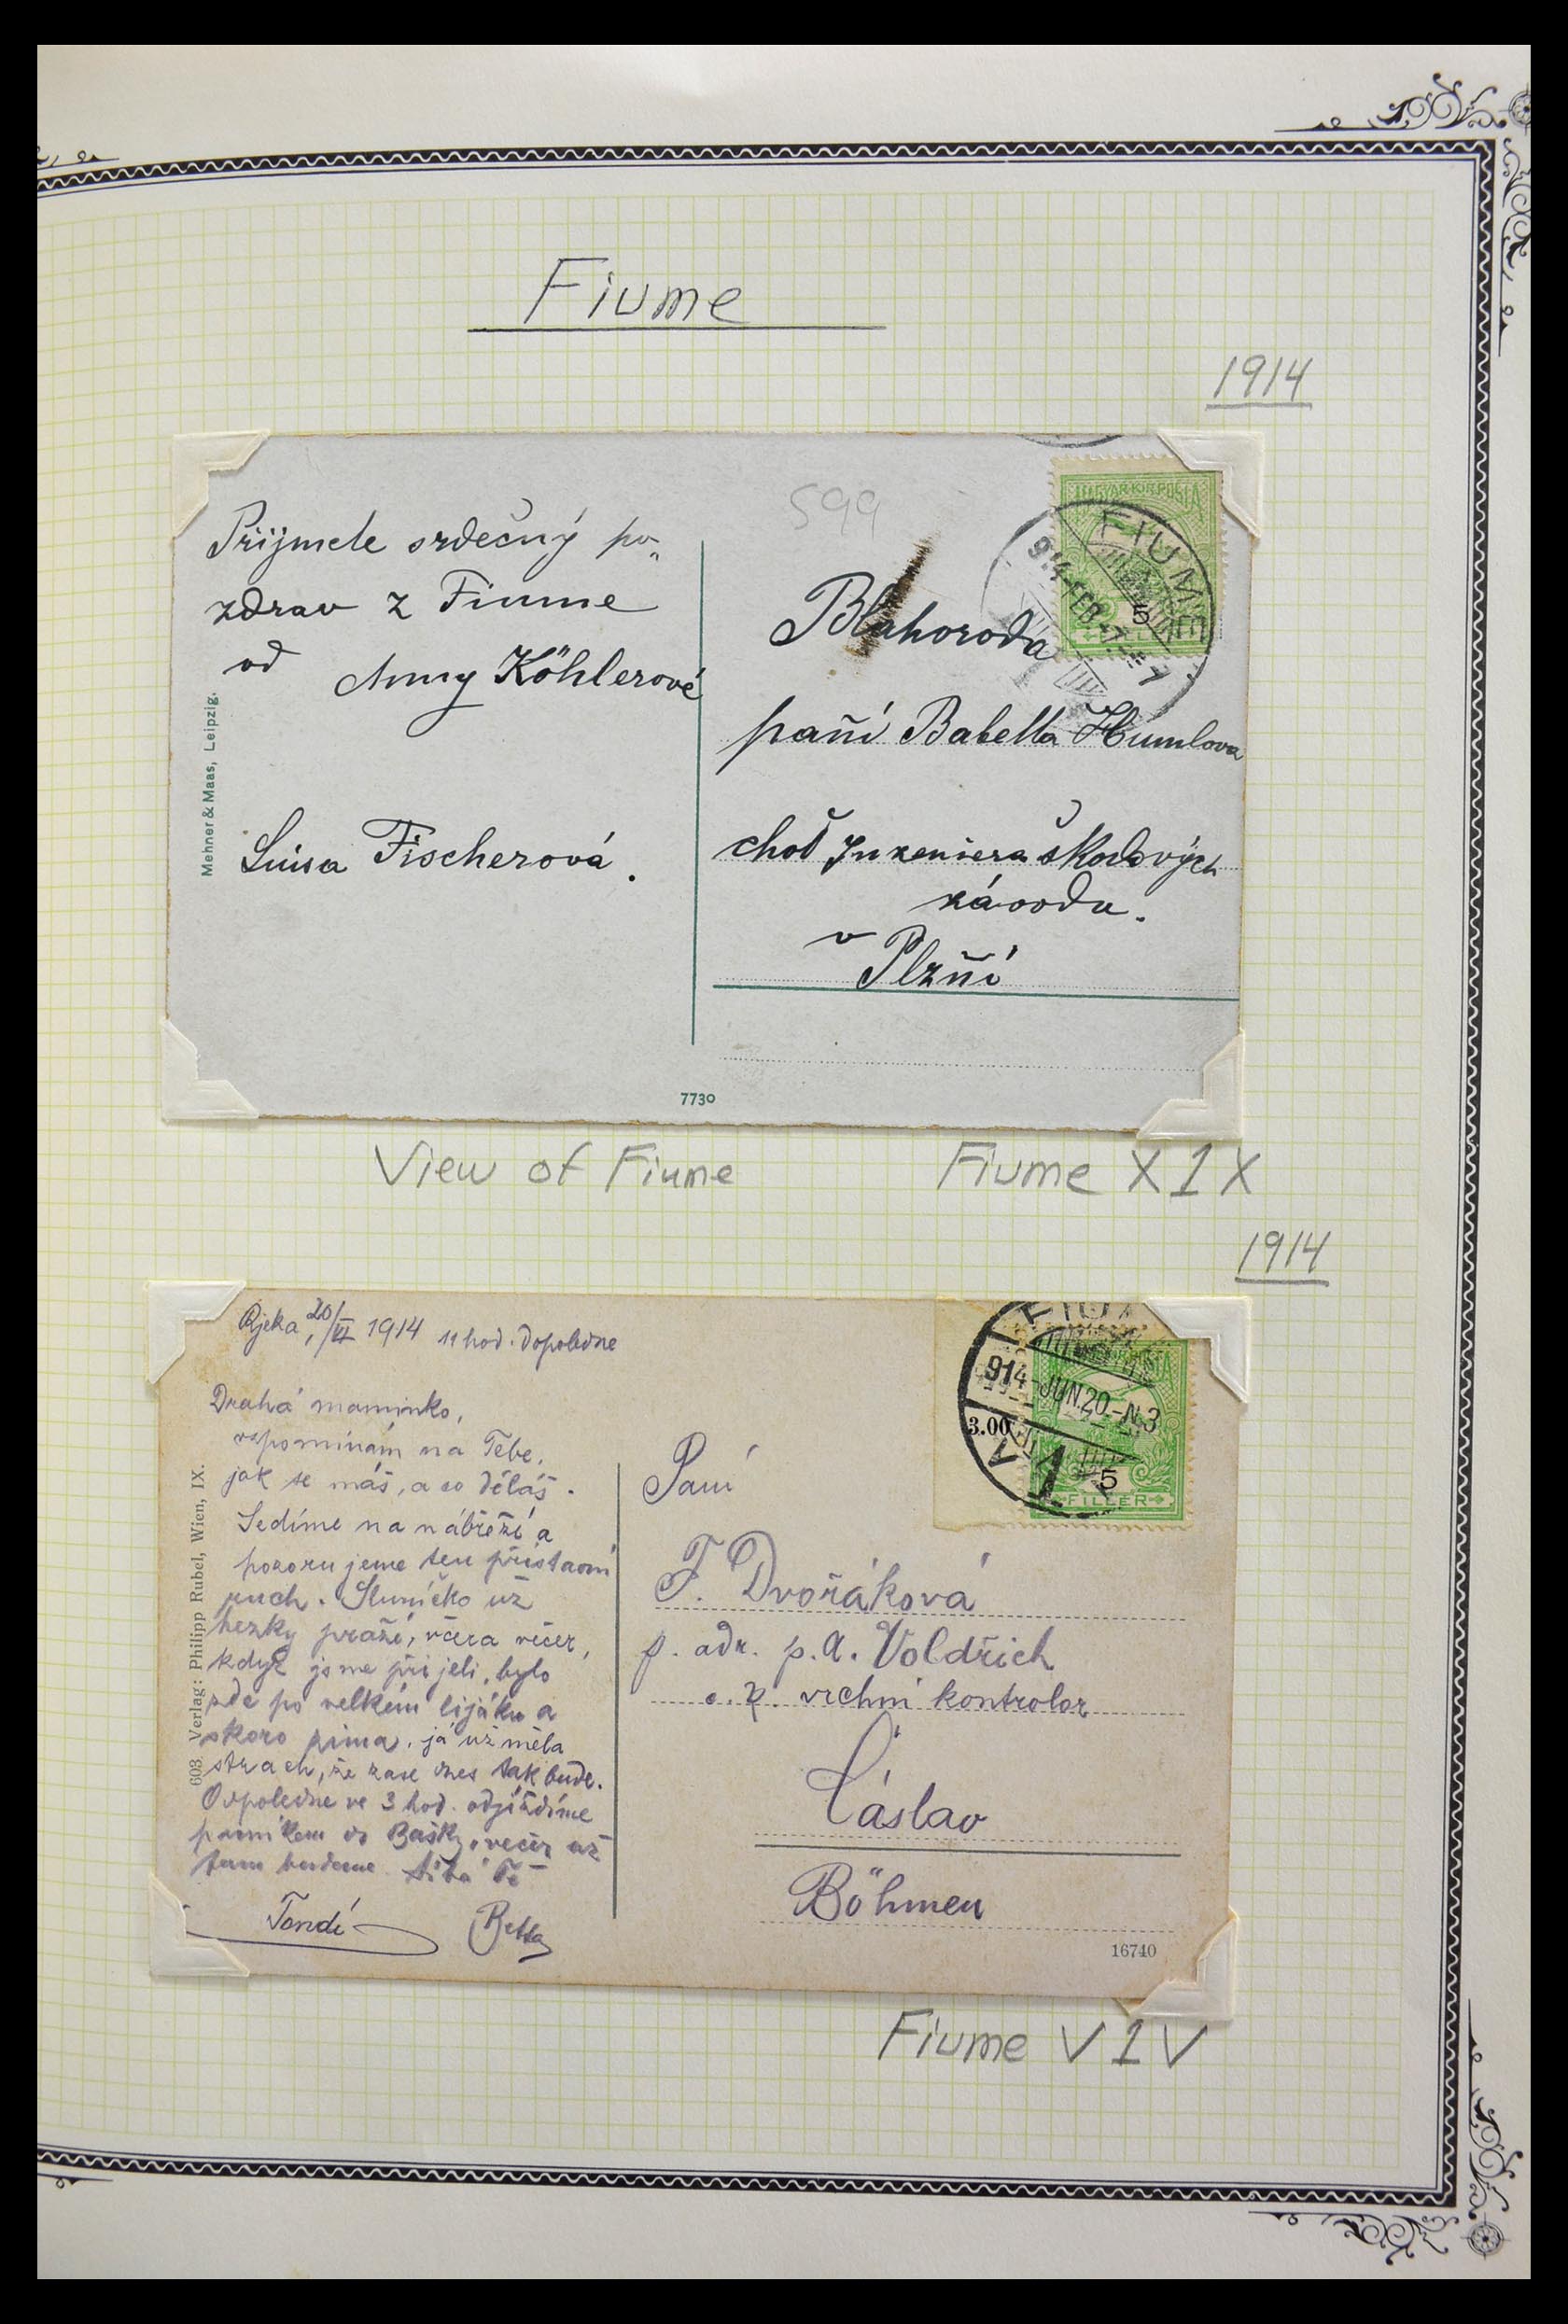 Fiume
1914
599
MAGYAR KIR. POSTA
FIUME
914-FEB.-7.
5
Přijmete srdečný po-
zdrav z Fiume
od Anny Köhlerové
Luisa Fischerová.
Mehner & Maas, Leipzig.
Blahoroda
paňí Babetta Humlova
choť Inženiera Škodových
závodu.
v
Plzňi
7730
View of Fiume
Fiume X 1 X
1914
Rjeka, 20/VI 1914 11 hod. dopoledne
Drahá maminko,
vzpomínám na Tebe,
jak se máš, a co děláš.
Sedíme na nábřeží a
pozorujeme ten přístavní
ruch. Sluníčko už
hezky praží, včera večer,
když jsme přijeli, bylo
zde po velkém lijáku a
skoro zima, já už měla
strach, že zase dnes tak bude.
Odpoledne ve 3 hod. odjíždíme
parníkem do Bašky, večer už
tam budeme. Líbá Tě
Betta
603 Verlag: Philipp Rubel, Wien, IX.
914-JUN.20.-N.3
3.00
1
5
FILLER
Paní
F. Dvořáková
p. adr. p. A. Voldřich
c. k. vrchní kontrolor
Čáslav
Böhmen
16740
Fiume V 1 V